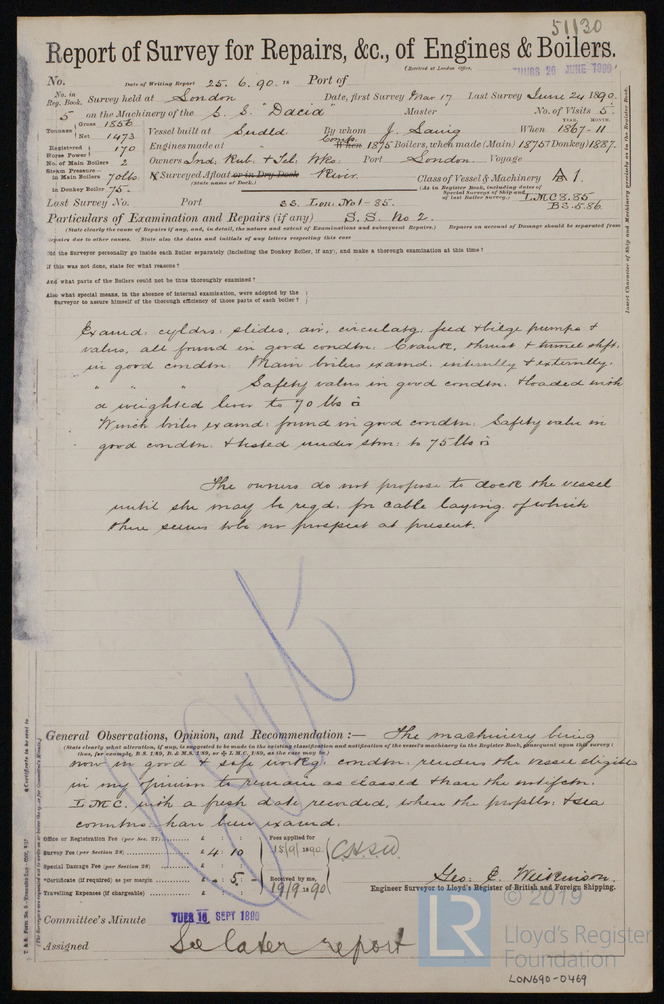 51130
Report of Survey for Repairs, &c., of Engines & Boilers.
(Received at London Office,
THURS 26 JUNE 1890
No. Date of Writing Report 25. 6. 90. Port of
No. in Reg. Book. Survey held at London Date, first Survey Mar 17 Last Survey June 24 1890.
5 on the Machinery of the S. S. "Dacia" Master No. of Visits 5
Tonnage Gross 1856 Net 1473 Vessel built at Sndld By whom J. Laing When YEAR. MONTH. 1867-11
Registered Horse Power 170 Engines made at When Compd. 1875 Boilers, when made (Main) 1875 (Donkey) 1887.
No. of Main Boilers 2 Owners Ind. Rub. & Tel. Wks. Port London Voyage
Steam Pressure in Main Boilers 70 lbs. If Surveyed Afloat or in Dry Dock River. Class of Vessel & Machinery A 1.
in Donkey Boiler 75. (State name of Dock.) (As in Register Book, including dates of Special Surveys of Ship and of last Boiler survey.) LMC 8.85
BS. 5.86
Last Survey No. Port SS. Lon. No 1-85.
Particulars of Examination and Repairs (if any) S. S. No 2.
(State clearly the cause of Repairs if any, and, in detail, the nature and extent of Examinations and subsequent Repairs.) Repairs on account of Damage should be separated from
Repairs due to other causes. State also the dates and initials of any letters respecting this case
Did the Surveyor personally go inside each Boiler separately (including the Donkey Boiler, if any), and make a thorough examination at this time?
If this was not done, state for what reasons?
And what parts of the Boilers could not be thus thoroughly examined?
Also what special means, in the absence of internal examination, were adopted by the
Surveyor to assure himself of the thorough efficiency of those parts of each boiler?
Insert Character of Ship and Machinery precisely as in the Register Book.
Examd: cyldrs: slides, air, circulatg: feed & bilge pumps &
valves, all found in good condtn: Crank, thrust & tunnel shfts.
in good condtn: Main boilers examd. internally & externally.
" " " Safety valves in good condtn. & loaded with
a weighted lever to 70 lbs
Winch boiler examd: found in good condtn: Safety valve in
good condtn: & tested under stm: to 75 lbs
The owners do not propose to dock the vessel
until she may be reqd. for cable laying of which
there seems to be no prospect at present.
General Observations, Opinion, and Recommendation :— The machinery being
(State clearly what alteration, if any, is suggested to be made in the existing classification and notification of the vessel's machinery in the Register Book, consequent upon this survey:
thus, for example, B.S. 1/89, B. & M.S. 1/89, or L.M.C. 1/89, as the case may be.)
now in good & safe workg. condtn. renders the vessel eligible
in my opinion to remain as classed & have the notifctn.
L.M.C. with a fresh date recorded, when the propeller & sea
conctns. have been examd.
Office or Registration Fee (per Sec. 27) £ : : Fees applied for
Survey Fee (per Section 28) £ 4 : 10 15/9/1890
Special Damage Fee (per Section 28) £ : :
*Certificate (if required) as per margin £ - : 5. - Received by me,
Travelling Expenses (if chargeable) £ : : 19/9/1890
Geo: C. Wilkinson.
Engineer Surveyor to Lloyd's Register of British and Foreign Shipping.
Committee's Minute TUES 16 SEPT 1890
Assigned See later report
© 2019
LR
Lloyd's Register
Foundation
LON690-0469